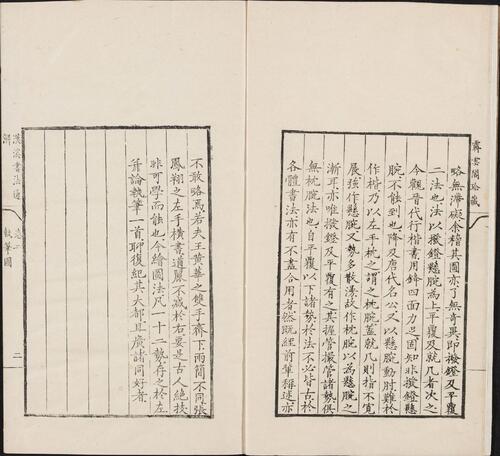 霽雲閣珍藏
略無滯礙余稽其圖亦了無奇異即撥鐙及平覆
二法也法以撥鐙懸腕為上平覆及就几者次之
今觀晉代行楷書用鋒四面力足固知非撥鐙懸
腕不能到也降及唐代名公又以懸腕動肘難於
作楷乃以左手枕之謂之枕腕蓋就几則指不寬
展强作懸腕又勢多散漫故作枕腕以為懸腕之
漸耳亦唯撥鐙及平覆有之其握管撮管諸勢俱
無枕腕法也自平覆以下諸勢於法不必皆古於
各體書法亦有不盡合用者然既經前軰稱述亦
不敢略焉若夫王黃華之雙手齊下兩簡不同張
鳳翔之左手橫書遒麗不减於右要是古人絶技
非可學而能也今繪圖法凡一十二勢存之於左
并論執筆一首聊復紀其大都且廣諸同好者
漢溪書法通解
卷二
執筆圖
二